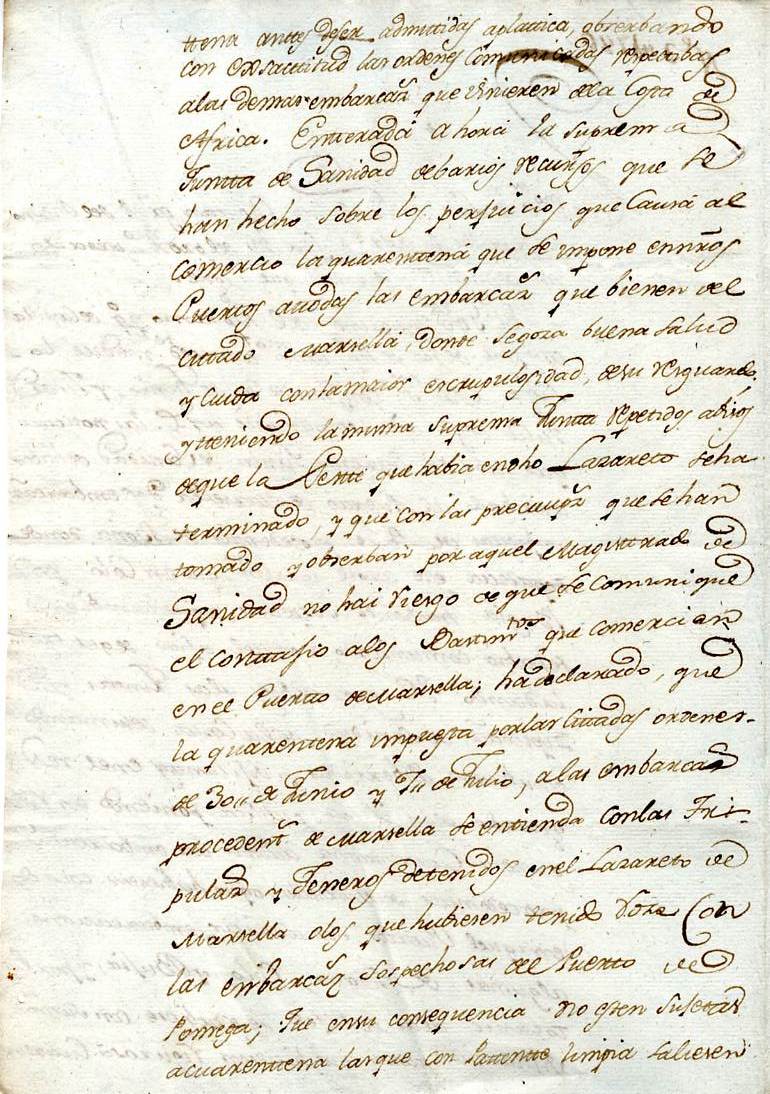 ttena antes deser admittidas aplattica, obserbando
con exsactitud las ordenes Comunicadas respectibas
alas demas embarcaz.s que vinieren dela Costa de
Africa. Enterada ahora la suprema
Juntta de Sanidad debarios recursos que se
han hecho sobre los perjuicios que Causa al
comercio la quarentena que se impone ennr̃os
Puertos atodas las embarcaz.s que bienen del
cittado Marsella, donde segoza buena salud
y cuida conlamaior escrupulosidad, desu resguardo,
ytteniendo lamisma suprema Juntta repetidos abisos
deque la Peste que habia endho Lazareto seha
terminado, y que con las precauz.s que se han
tomado y obserban por aquel Magistrado de
Sanidad no hai riesgo de que se comunique
el conttasio alos Bastim.tos que comercian
en el Puerto de Marsella; hadeclarado, que
la quarentena impuesta porlas Cittadas ordenes
de 30,, de Junio y 7,, de Julio, alas embarcaz.s
procedent.s de Marsella se entienda Conlas Tri-
pulaz.s y Jeneros detenidos enel Lazareto de
Marsella olos que hubiesen tenido Con
las embarcaz.s Sospechosas del Puerto de
Pomega; que ensu consequencia no esten sujetas
acuarenttena lasque con Pattente limpia saliesen